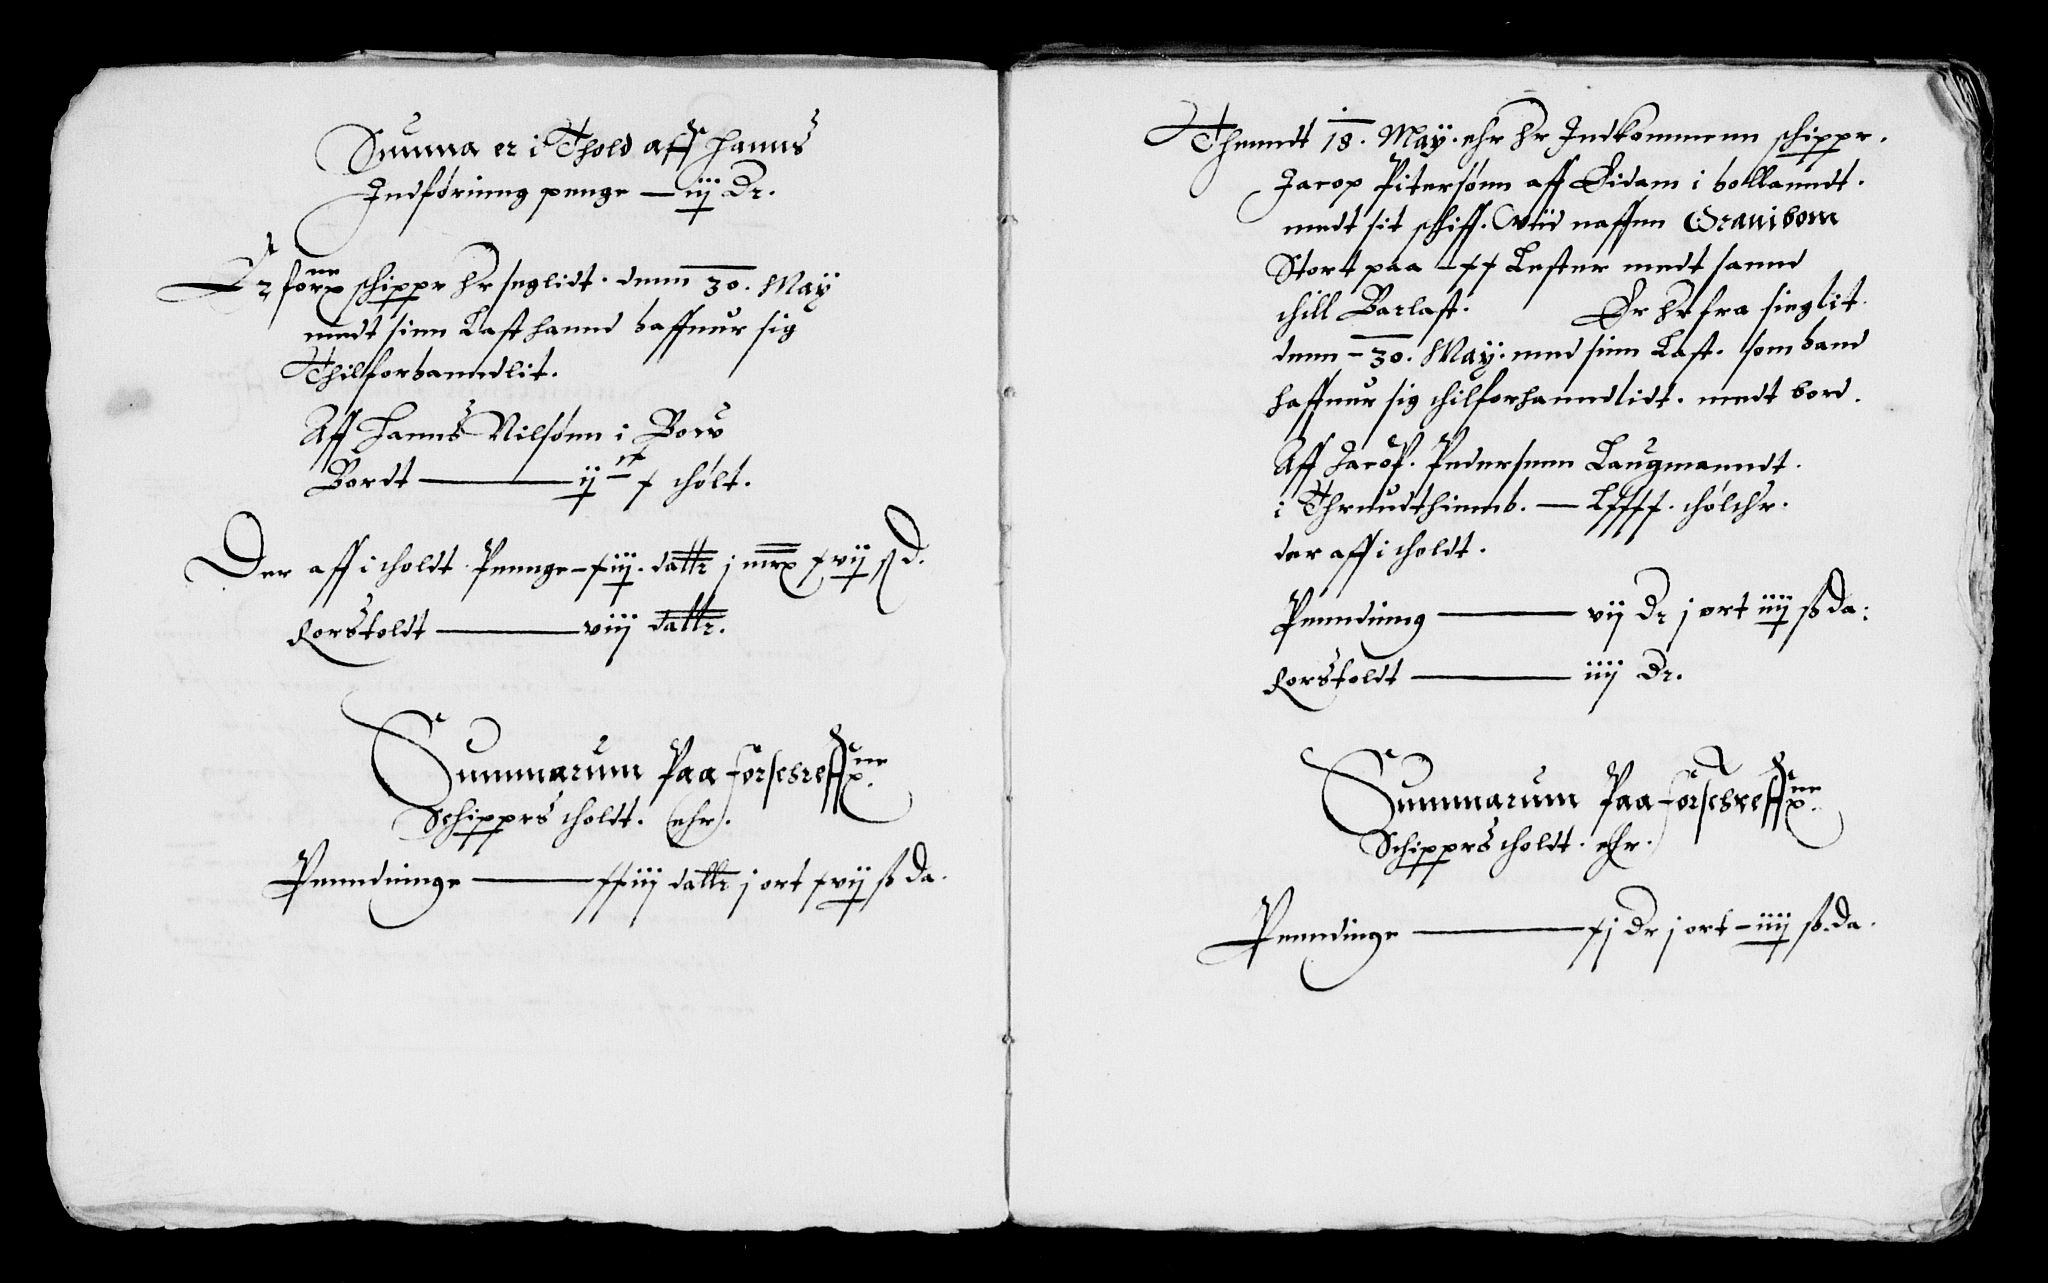 Summa er i Thold aff hanns
Indførinng penge — iiij Dr.
Er for:ne schippr hr seglidt. denn 30. May
medt sinn Last hannd haffuer sig
Thilforhanndlit.
Aff Hanns Nilsønn i Borw
Bordt — ij c x thølt.
Der aff i tholdt. Pennge — xiij. dallr j mrx xvij ß d.
Korstoldt — viij dallr.
Summarum Paa forschreffne
Schipprs tholdt. ehr.
Penndinnge — xxiij dallr j ort xvij ß da.
Thenndt 18. May. ehr hr Indkommenn schippr.
Jacop Pitersønn aff Eidam i hollanndt.
medt sit schiff. wiid naffnn Granibom
Stort paa — xx Lester medt sannd
thill Barlast. Er hr fra sieglit
denn — 30. May. med sinn Last. som hand
haffuer sig thilforhanndlidt. medt bord.
Aff Jacop. Pedersenn Laugmanndt.
i Thrundthiemb. — Lxxxx. thølthr.
der aff i tholdt.
Penndinng — vij Dr j ort iiij ß da:
Korstoldt — iiij Dr.
Summarum Paa forschreffne
Schipprs tholdt. ehr.
Penndinge — xj Dr j ort — iiij ß. da.